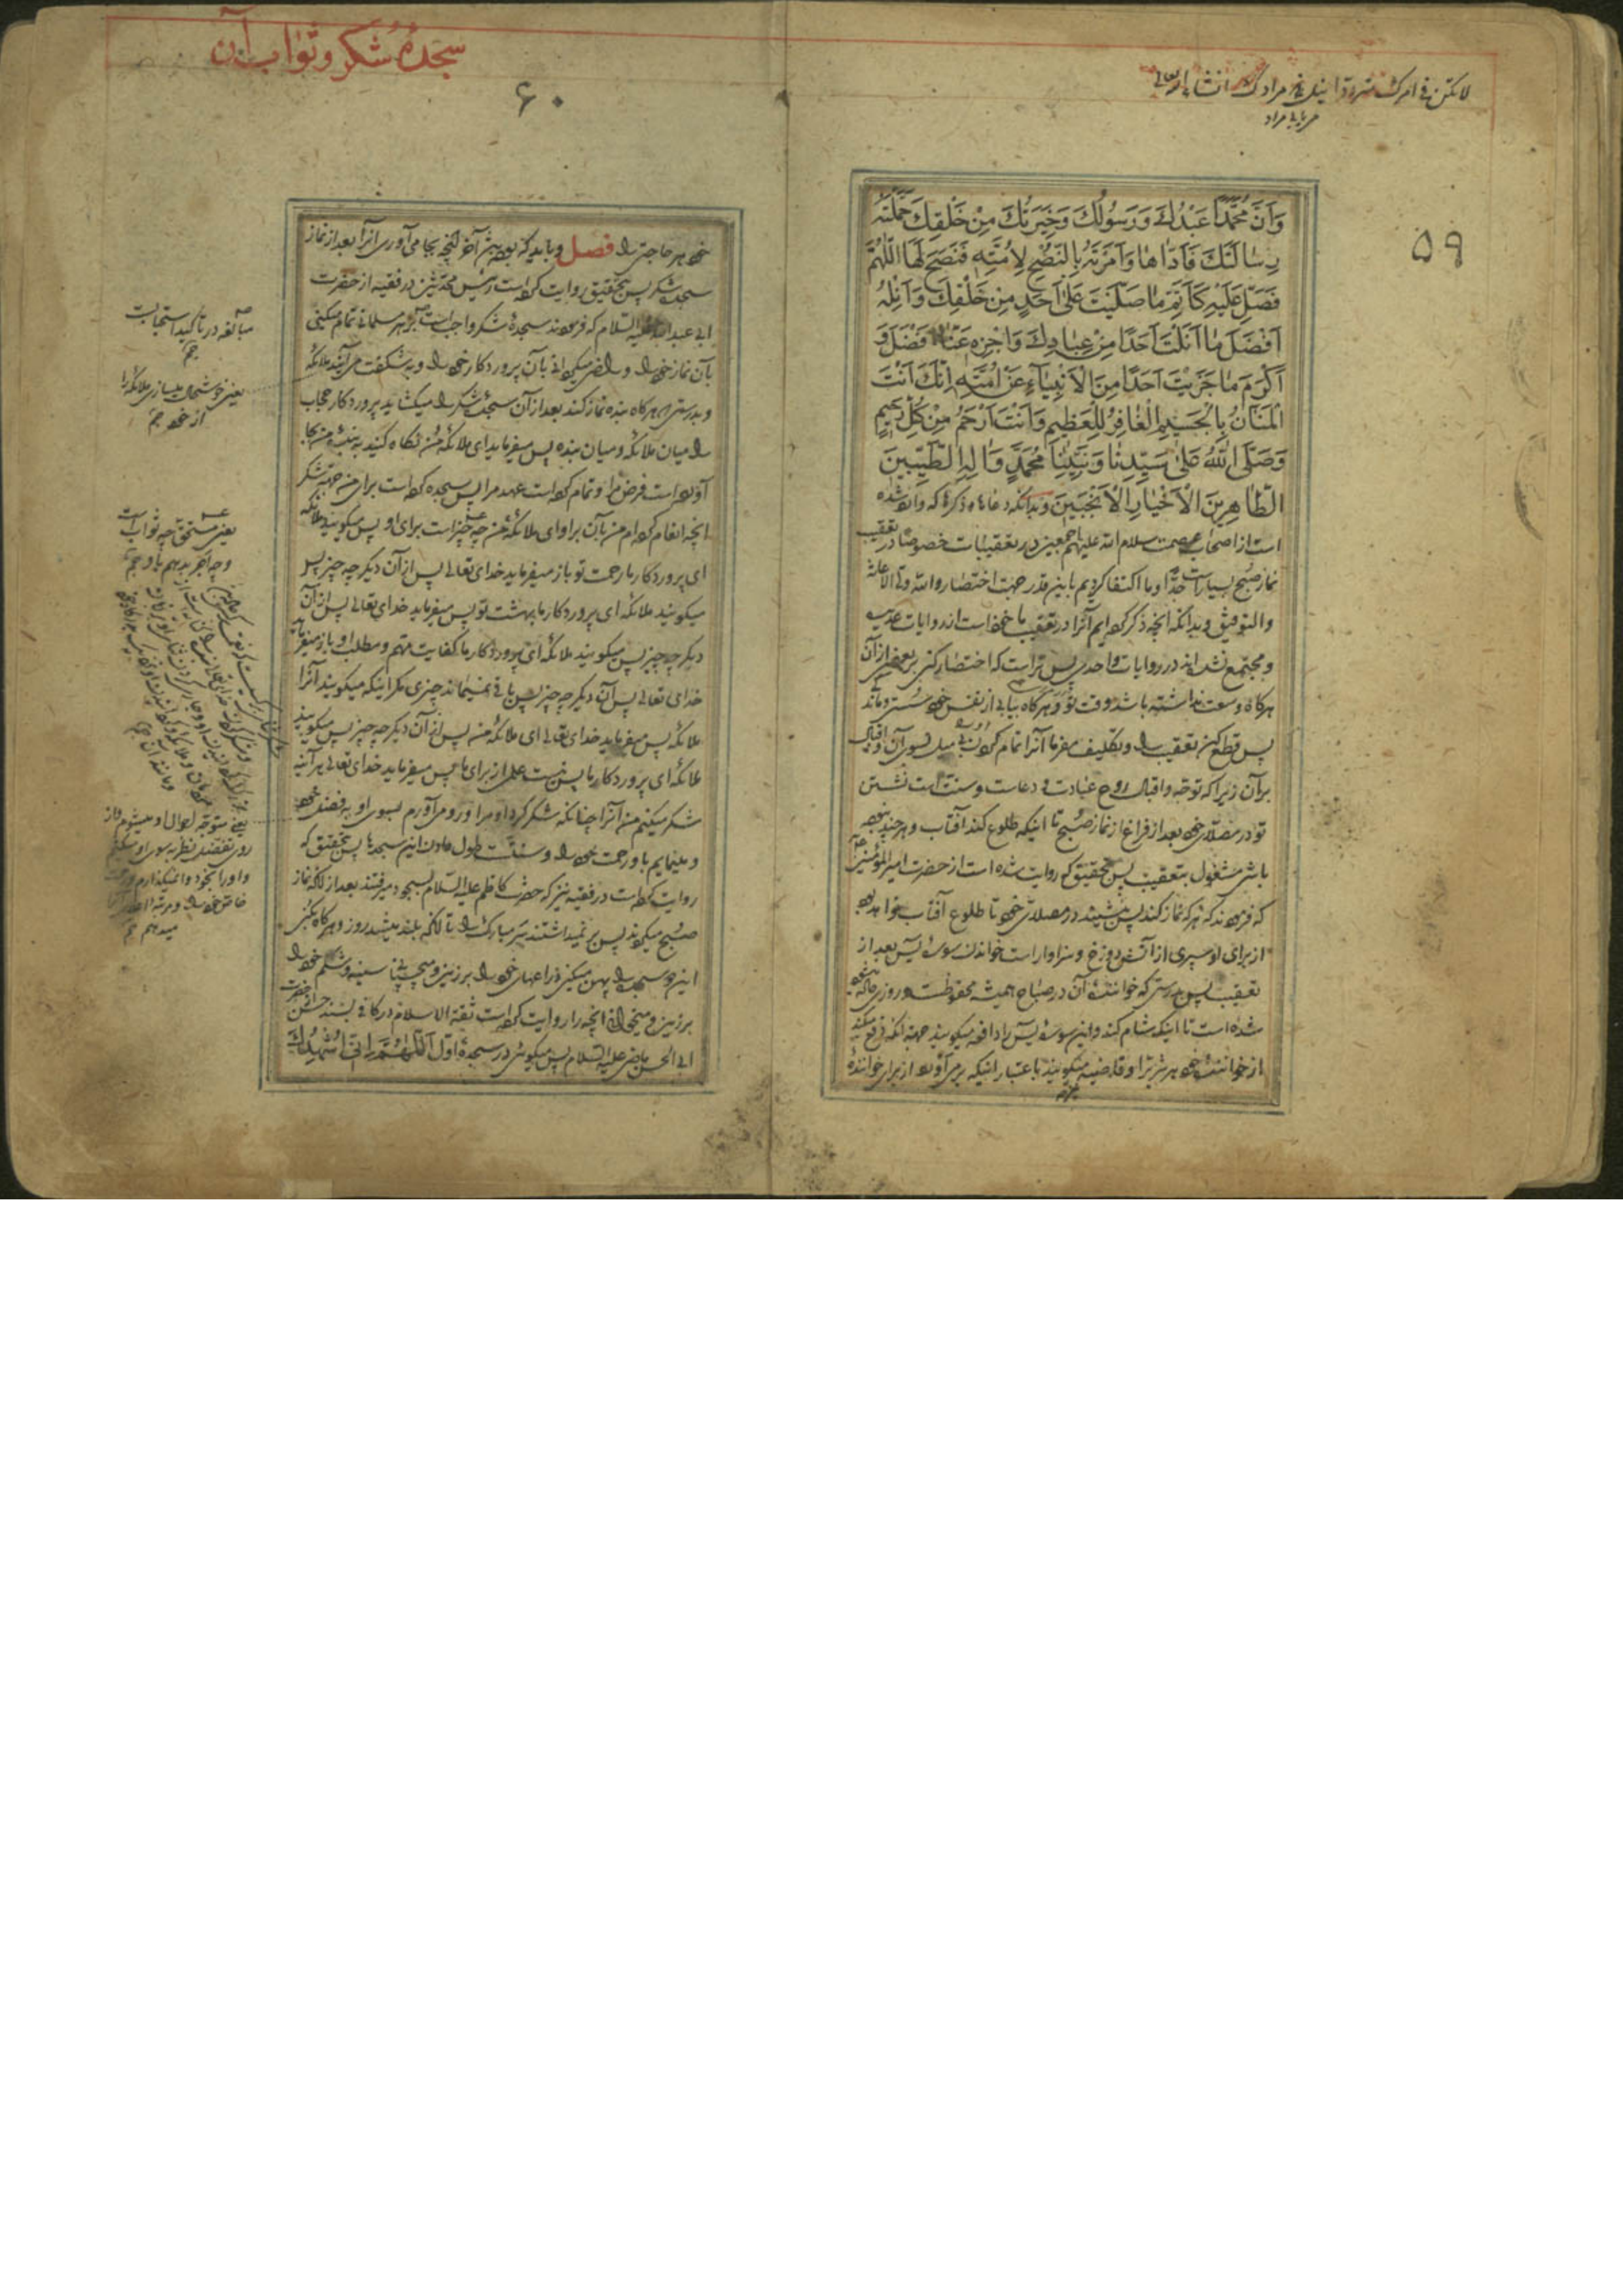 ۵۹
وَاَنَّ مُحَمَّدًا عَبْدُكَ وَرَسُولُكَ وَخِيَرَتُكَ مِنْ خَلْقِكَ حَمَّلْتَهُ
رِسَالَتَكَ فَاَدَّاهَا وَاَمَرْتَهُ بِالنُّصْحِ لِاُمَّتِهِ فَنَصَحَ لَهَا اَللّٰهُمَّ
فَصَلِّ عَلَيْهِ كَاَتَمِّ مَا صَلَّيْتَ عَلٰى اَحَدٍ مِنْ خَلْقِكَ وَاَنِلْهُ
اَفْضَلَ مَا اَنَلْتَ اَحَدًا مِنْ عِبَادِكَ وَاجْزِهِ عَنَّا اَفْضَلَ وَ
اَكْرَمَ مَا جَزَيْتَ اَحَدًا مِنَ الْاَنْبِيَآءِ عَنْ اُمَّتِهِ اِنَّكَ اَنْتَ
الْمَنَّانُ بِالْجَسِيمِ الْغَافِرُ لِلْعَظِيمِ وَاَنْتَ اَرْحَمُ مِنْ كُلِّ رَحِيمٍ
وَصَلَّى اللّٰهُ عَلٰى سَيِّدِنَا وَنَبِيِّنَا مُحَمَّدٍ وَاٰلِهِ الطَّيِّبِينَ
الطَّاهِرِينَ الْاَخْيَارِ الْاَنْجَبِينَ وبدانکه دعاها و ذکرها که وارد شده
است از اصحاب عصمت سلام الله علیهم اجمعین در تعقیبات خصوصا در تعقیب
نماز صبح بسیار است جدّا و ما اکتفا کردیم باین قدر جهت اختصار والله ولی الاعانة
والتوفیق و بدانکه آنچه ذکر کرده ایم آنرا در تعقیب ماخوذ است از روایات عدیده
و مجتمع نشده اند در روایات واحد پس تراست که اختصار کنی بر بعضی از آن
هرگاه وسعت نداشته باشد وقت تو و هرگاه بیابی از نفس خود سستی و ماندگی
پس قطع کن تعقیب را و تکلیف مفرما آنرا تمام کردن بی میل بسوی آن و اقبال
بر آن زیرا که توجه و اقبال روح عبادت و دعاست و سنت است نشستن
تو در مصلای خود بعد از فراغ از نماز صبح تا اینکه طلوع کند آفتاب و هر چند نبوده
باشی مشغول بتعقیب پس بتحقیق که روایت شده است از حضرت امیرالمؤمنین
که فرمودند که هر که نماز کند پس بنشیند در مصلای خود تا طلوع آفتاب خواهد بود
از برای او سپری از آتش دوزخ و سزاوار است خواندن سوره یس بعد از
تعقیب پس بدرستی که خواننده آن در صباح همیشه محفوظست و روزی داده
شده است تا اینکه شام کند و این سوره یس را دافعه میگویند جهة آنکه دفع میکند
از خواننده خود هر شر را و قاضیه میگویند باعتبار اینکه بر می آورد از برای خواننده
سجدهٔ شکر و ثواب آن
۶۰
خود هر حاجتی را فصل و باید که بوده باشد آخر آنچه بجا می آوری آنرا بعد از نماز
سجده شکر پس بتحقیق روایت کرده است رئیس محدثین در فقیه از حضرت
ابی عبدالله علیه السلام که فرمودند سجدهٔ شکر واجب است بر هر مسلمانی تمام میکنی
بآن نماز خود را و راضی میگردانی بآن پروردکار خود را و به شکفت می آیند ملائکه
و بدرستی هرگاه بنده نماز کند بعد از آن سجده شکر را میکشاید پروردکار حجاب
را میان ملائکه و میان بنده پس میفرماید ای ملائکه من نگاه کنید به بنده من بجا
آورده است فرض مرا و تمام کرده است عهد مرا پس سجده کرده است برای من جهة شکر
آنچه انعام کرده ام من بآن بر او ای ملائکه من چه چیز است برای او پس میکویند ملائکه
ای پروردکار ما رحمت تو باز میفرماید خدای تعالی پس از آن دیکر چه چیز پس
میکویند ملائکه ای پروردکار ما بهشت تو پس میفرماید خدای تعالی پس از آن
دیکر چه چیز پس میکویند ملائکه ای پروردکار ما کفایت مهم و مطلب او باز میفرماید
خدای تعالی پس از آن دیکر چه چیز پس باقی نمیماند چیزی مگر اینکه میکویند آنرا
ملائکه پس میفرماید خدای تعالی ای ملائکه من پس از آن دیکر چه چیز پس میکویند
ملائکه ای پروردکار ما پس نیست علم از برای ما پس میفرماید خدای تعالی هر آینه
شکر میکنم من آنرا چنانکه شکر کرد او مرا و رو می آورم بسوی او به فضل خود
و مینمایم باو رحمت خود را و سنت است طول دادن این سجدها پس بتحقیق که
روایت کرده است در فقیه نیز که حضرت کاظم علیه السلام بسجود میرفتند بعد از آنکه نماز
صبح میکردند پس بر نمیداشتند سر مبارک را تا آنکه بلند میشد روز و هرگاه بکنی
این دو سجده را پهن میکنی ذراعهای خود را بر زمین و می چسپانی سینه و شکم خود را
بر زمین و میخوانی آنچه را روایت کرده است ثقة الاسلام در کافی بسند حسن از حضرت
ابی الحسن ماضی علیه السلام پس میکوئی در سجدهٔ اول اَللّٰهُمَّ اِنِّی اُشْهِدُكَ
مبالغه در تاکید استحبابست
یعنی خوشحال میسازی ملائکه را
از خود
یعنی مستحق چه ثوابست
و چه اجر بدهم باو
یعنی متوجه احوال او میشوم و از
روی تفضل نظر بسوی او میکنم
و او را بخود وا نمیگذارم و رحمت
خاص خود را
میدهم